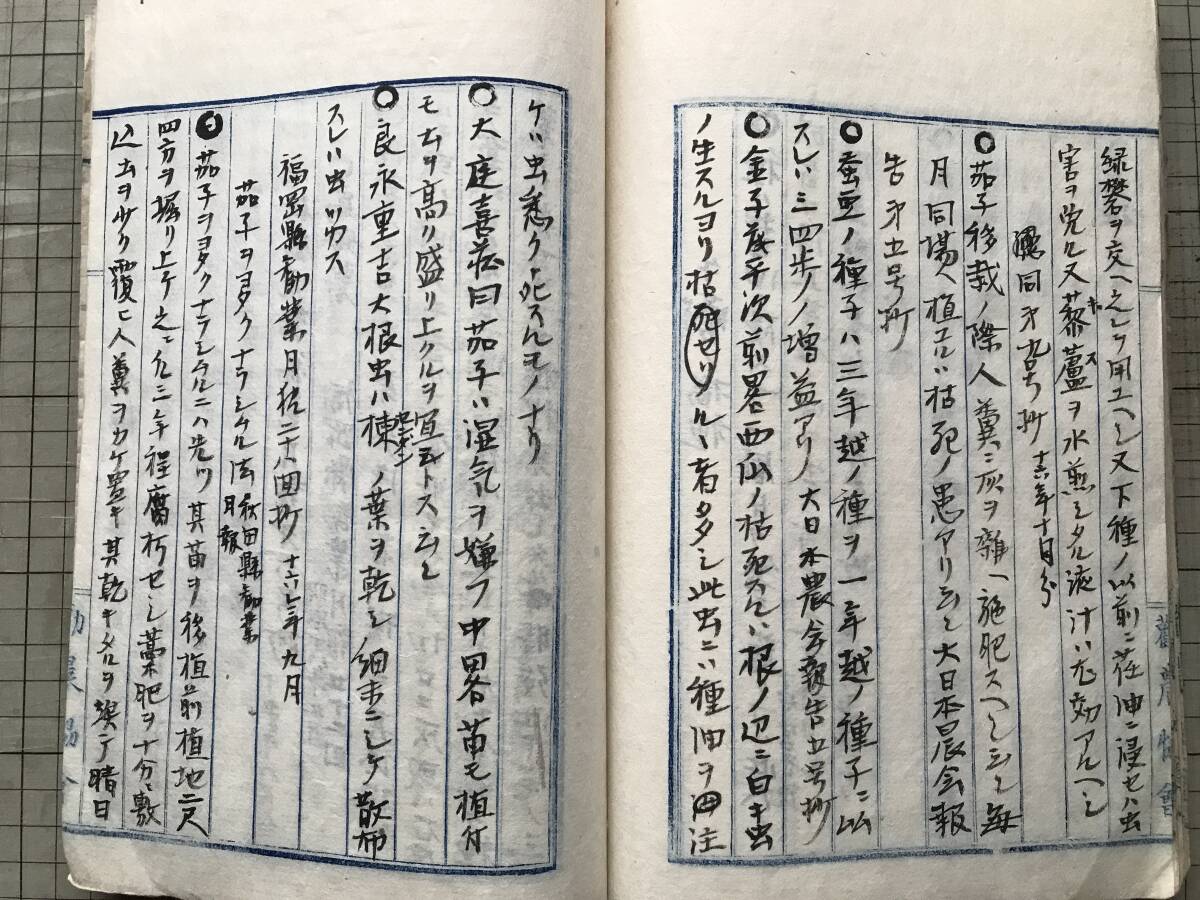 緑礬ヲ交ヘ之レヲ用ユヘシ又下種ノ以前ニ荏油ニ浸セハ虫
害ヲ免ル又藜蘆ヲ水煎シタル液汁ハ尤効アルヘシ
同才九号抄 十六年十月分
茄子移栽ノ際人糞ニ灰ヲ雑ヘ施肥スヘシ云々毎
月同場ヘ植ユルハ枯死ノ患アリ云々大日本農会報
告才五号抄
蚕豆ノ種子ハ三年越ノ種ヲ一年越ノ種子ニ比
スレハ三四歩ノ増益アリ 大日本農会報告五号抄
金子 平次前畧西瓜ノ枯死スルハ根ノ辺ニ白キ虫
ノ生スルヨリ枯死セリル、者多シ此虫ニハ種油ヲ 注
ケハ虫悉ク死スルモノナリ
大庭喜荘曰茄子ハ湿気ヲ嫌フ中畧苗モ植付
モ土ヲ高ク盛リ上クルヲ宜シトス云々
良永重吉大根虫ハ楝センダンノ葉ヲ乾シ細末ニシテ散布
スレハ虫ツカス
福岡縣勧業月報二十八回抄 十六年九月
茄子ヲヨクナラシムル法 秋田縣勧業月報
茄子ヲヨクナラシムルニハ先ツ其苗ヲ移植前植地二尺
四方ヲ掘リ上ケ之ニ 三年程腐朽セシ藁肥ヲ十分ニ敷
込土ヲ少ク覆ヒ人糞ヲカケ置キ其乾キタルヲ 晴日
勧農協会